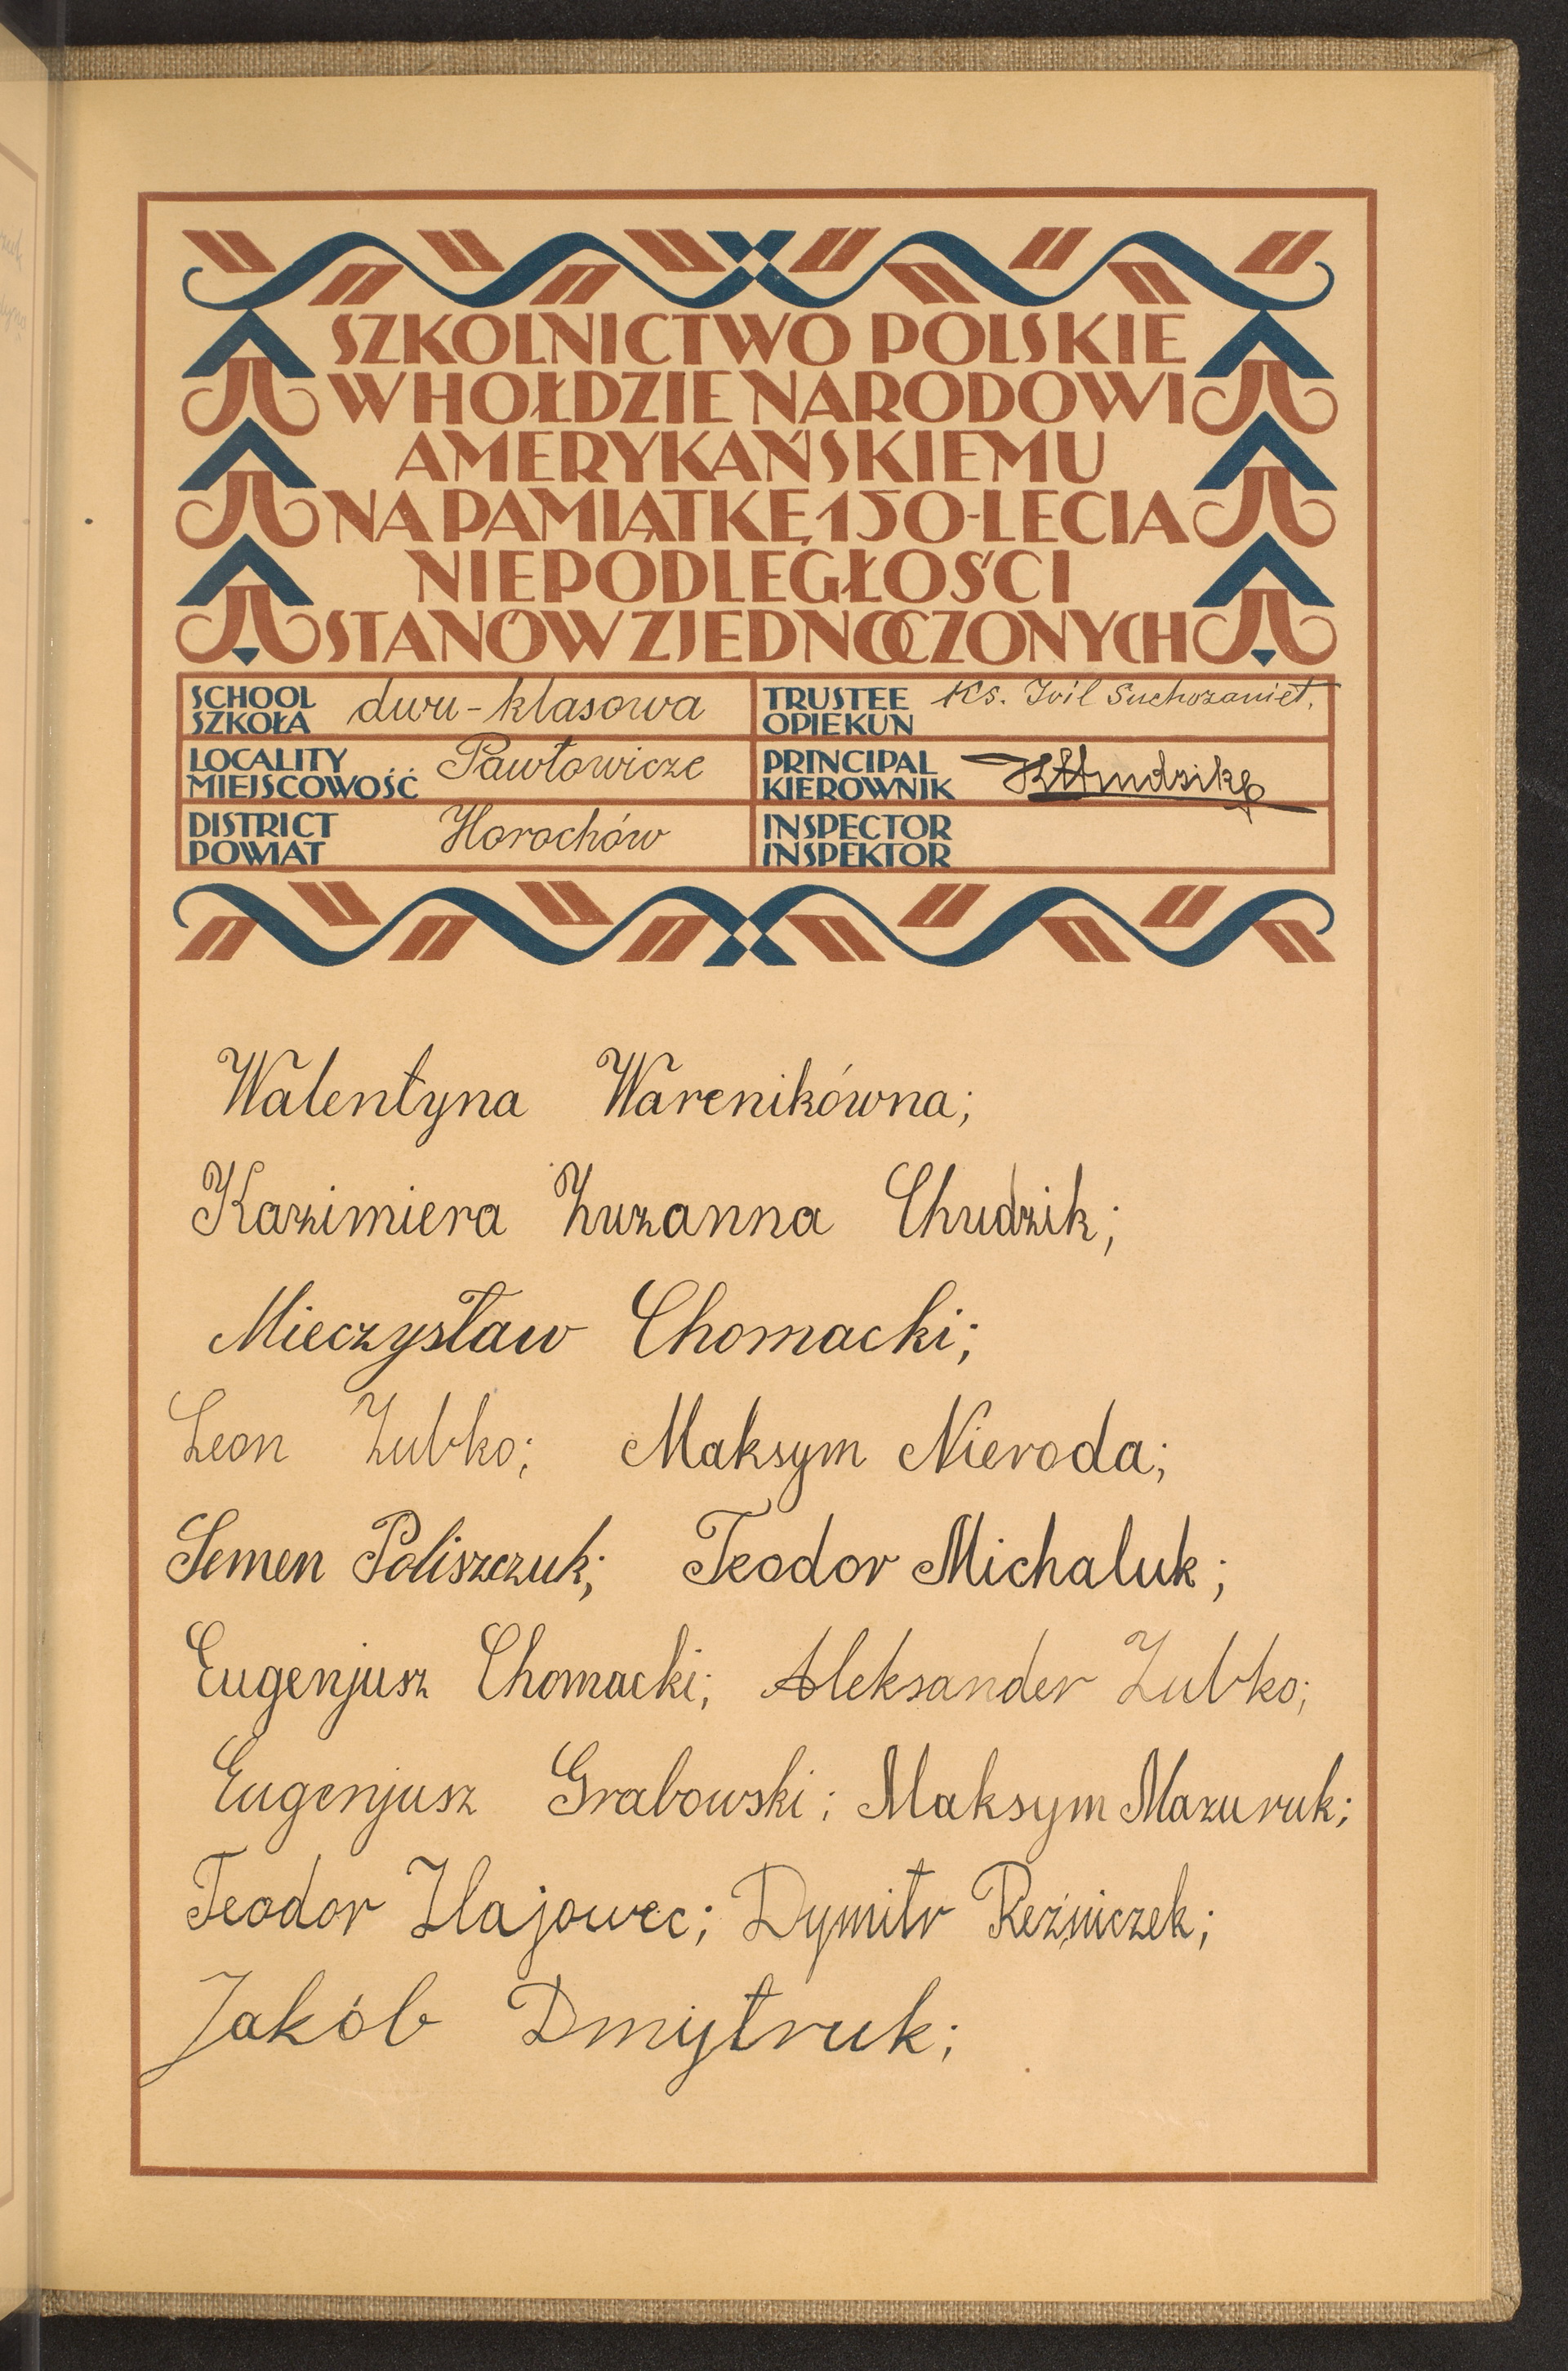 SZKOLNICTWO POLSKIE
W HOŁDZIE NARODOWI
AMERYKAŃSKIEMU
NA PAMIĄTKĘ 150-LECIA
NIEPODLEGŁOŚCI
STANÓW ZJEDNOCZONYCH
SCHOOL
SZKOŁA
dwu-klasowa
TRUSTEE
OPIEKUN
Ks. Ivil Suchozaniet.
LOCALITY
MIEJSCOWOŚĆ
Pawłowicze
PRINCIPAL
KIEROWNIK
DISTRICT
POWIAT
Horochów
INSPECTOR
INSPEKTOR
Walentyna Warenikówna;
Kazimiera Zuzanna Chudzik;
Mieczysław Chomacki;
Leon Zubko; Maksym Nieroda;
Semen Poliszczuk; Teodor Michaluk;
Eugenjusz Chomacki; Aleksander Zubko;
Eugenjusz Grabowski; Maksym Mazuruk;
Teodor Hajowec; Dymitr Reźniczek;
Jakób Dmytruk;